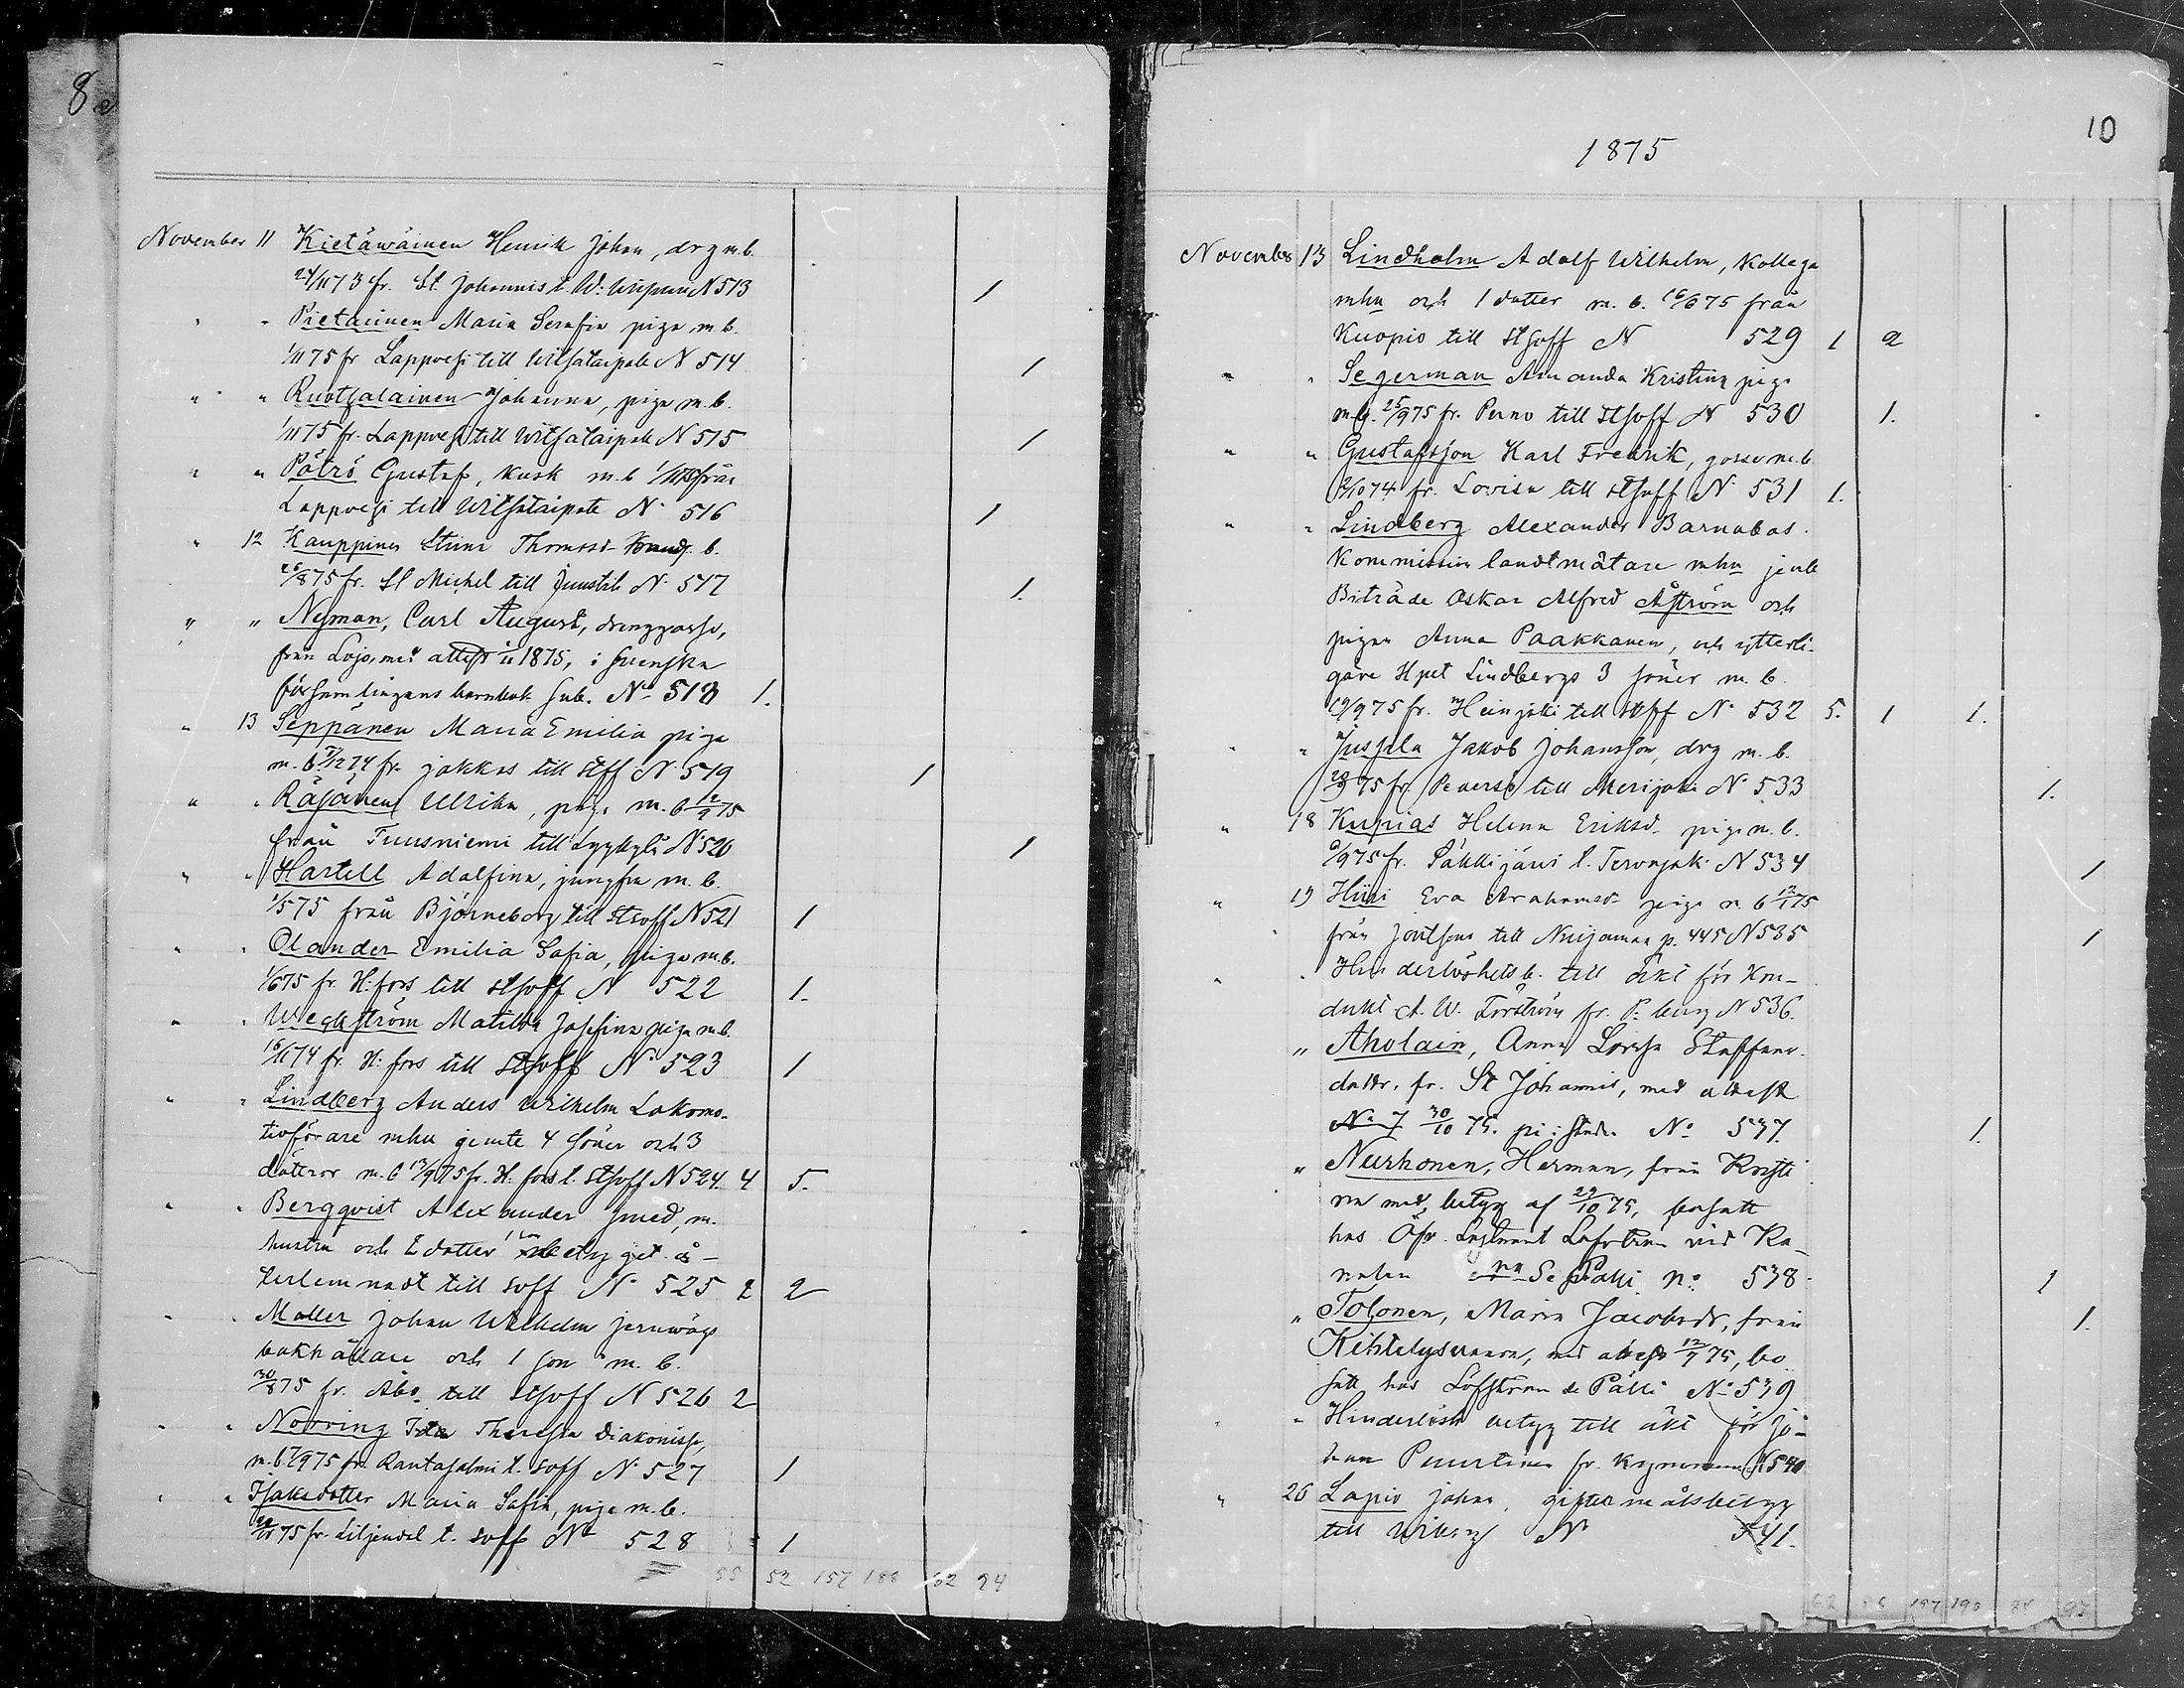 8
November 11 Kietäwäinen Henrik Johan, drg m.b.
24/1173 fr. St. Johannis t. W: N 513 1
" " Pietarinen Maria Serafia piga m b.
1/1175 fr Lappvesi till Witsataipale N 514 1
" " Ruotsalainen Johanna, piga m.b.
1/1175 fr. Lappvesi till Witsataipale N 515 1
" " Pätrö Gustaf, kusk m.b 1/1175 från
Lappvesi till Witsataipale N. 516 1
" 12 Kauppinen Stina Thomasd. b.
26/875 fr. St Michel till Juustila N. 517 1.
" " Nyman, Carl August, drenggosse,
från Lojo, med attest 1875, i Svenska
församlingens barnbok sub. No 518 1.
" 13 Seppänen Maria Emilia piga
m. b 1274 fr. Jakkas till stff N. 519 1
" " Räsänen Ulrika, piga m. b 12/9 75
från Tuusniemi till Lyykylä N. 520 1
" " Hartell Adolfina, jungfru m. b.
1/575 från Björneborg till stsoff N 521 1
" " Olander Emilia Sofia, piga m.b.
1/675 fr. H:fors till stsoff N 522 1.
" " Weckström Matilda Josefina piga m.b.
16/1174 fr. H:fors till stsoff N. 523 1
" " Lindberg Anders Wilhelm Lokomo-
tivförare mhu jemte 4 söner och 3
döttrar m. b 13/975 fr. H. fors t. stsoff N 524. 4 5.
" " Bergqvist Alexander smed, m.
hustru och 1 dotter betyget å-
terlemnadt till soff N. 525 2
" " Moller Johan Wilhelm jernwägs
bokhållare och 1 son m. b.
30/875 fr. Åbo till stsoff N 526 2
" " Norring Ida Theresia Diakonissa,
m. b 7/975 fr. Rantasalmi t. soff N. 527 1
" " Isaksdotter Maria Sofia, piga m. b.
75 fr. Liljendal t. soff N. 528 1
55 52 157 188 62 94
10
1875
November 13 Lindholm Adolf Wilhelm, Kollega
mhu och 1 dotter m. b. 16/675 från
Kuopio till stsoff N 529 1 2
" " Segerman Amanda Kristina piga
m b. 25/975 fr. Perno till stsoff N 530 1.
" " Gustafsson Karl Fredrik, gosse m.b
1074 fr. Lovisa till stsoff N. 531 1.
" " Lindberg Alexander Barnabas.
Kommissions landtmätare mhu jemte
Biträde Oskar Alfred Åström och
pigan Anna Paakkanen, och ytterli-
gare Hpet Lindbergs 3 söner m. b.
19/975 fr. Heinjoki till stff N. 532 5. 1 1.
" " Jussila Jakob Johansson, drg m. b.
75 fr. Pedersö till Merijoki N. 533 1.
" 18 Kupias Helena Eriksd. piga m. b.
975 fr. Säkkijärvi t. Tervajoki N 534 1
" 19 Hiiri Eva Abrahamsd. piga m. b 75
från Joutseno till Nuijamaa p. 445 N 535 1
" " Hinderlöshets b. till äkt för Kon-
dukt A. W. Törström fr. P. burg N 536.
" Aholain, Anna Lovisa Staffans-
dottr. fr. St Johannis, med attest
No 7 30/10 75. No 537. 1.
" Nurhonen, Herman, från Kristi
na med betyg af 29/10 75, bosatt
hos Öfv. Löjtnant Löfström vid Ka-
nalen Se Pälli No 538. 1
" Tolonen, Maria Jacobsdr, från
Kihtelysvaara, med attest 12/9 75, bo
satt hos Löfström se Pälli No 539 1.
" " Hinderlösh betyg till äkt för Jo-
han Puurtinen fr. N 540
" 26 Lapio Johan, giftermålsbetyg
till Wiborg N. 541.
62 56 157 190 97